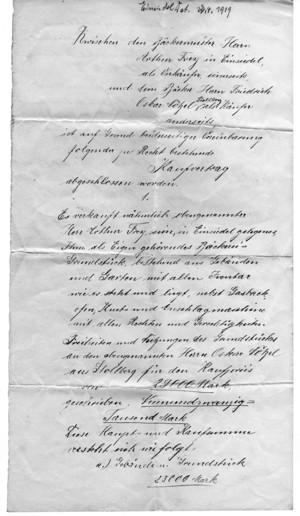 Einsiedel, d. 1919
Zwischen dem Bäckermeister Herrn
Lothar Frey in Einsiedel,
als Verkäufer einerseits
und dem Bäcker Herrn Friedrich
Oskar als Käufer
anderseits
ist auf Grund beiderseitiger Vereinbarung
folgender zu Recht bestehende
Kaufvertrag
abgeschlossen worden.
1.
Es verkauft nähmlich obengenannter
Herr Lothar Frey, sein, in Einsiedel gelegenes
Ihm als Eigen gehörendes Bäckerei-
Grundstück, bestehend aus Gebäuden
und Garten, mit allem Inventar
wie es steht und liegt, nebst
ofen, Knet- und
mit allen Rechten und Gerechtigkeiten
Freiheiten und Nutzungen des Grundstückes
an den obengenannten Herrn Oskar
aus Stollberg für den Kaufpreis
von 29000 Mark
geschrieben Neunundzwanzig-
Tausend Mark
Diese Haupt- und Kaufsumme
versteht sich wie folgt.
a.) Gebäude u. Grundstück
23000 Mark